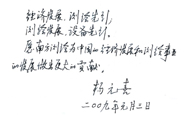 经济发展，测绘先行，
测绘发展，设备先行。
愿南方测绘为中国的经济发展和测绘事业
的发展做出更大的贡献。
杨元喜
二〇〇九年元月二日